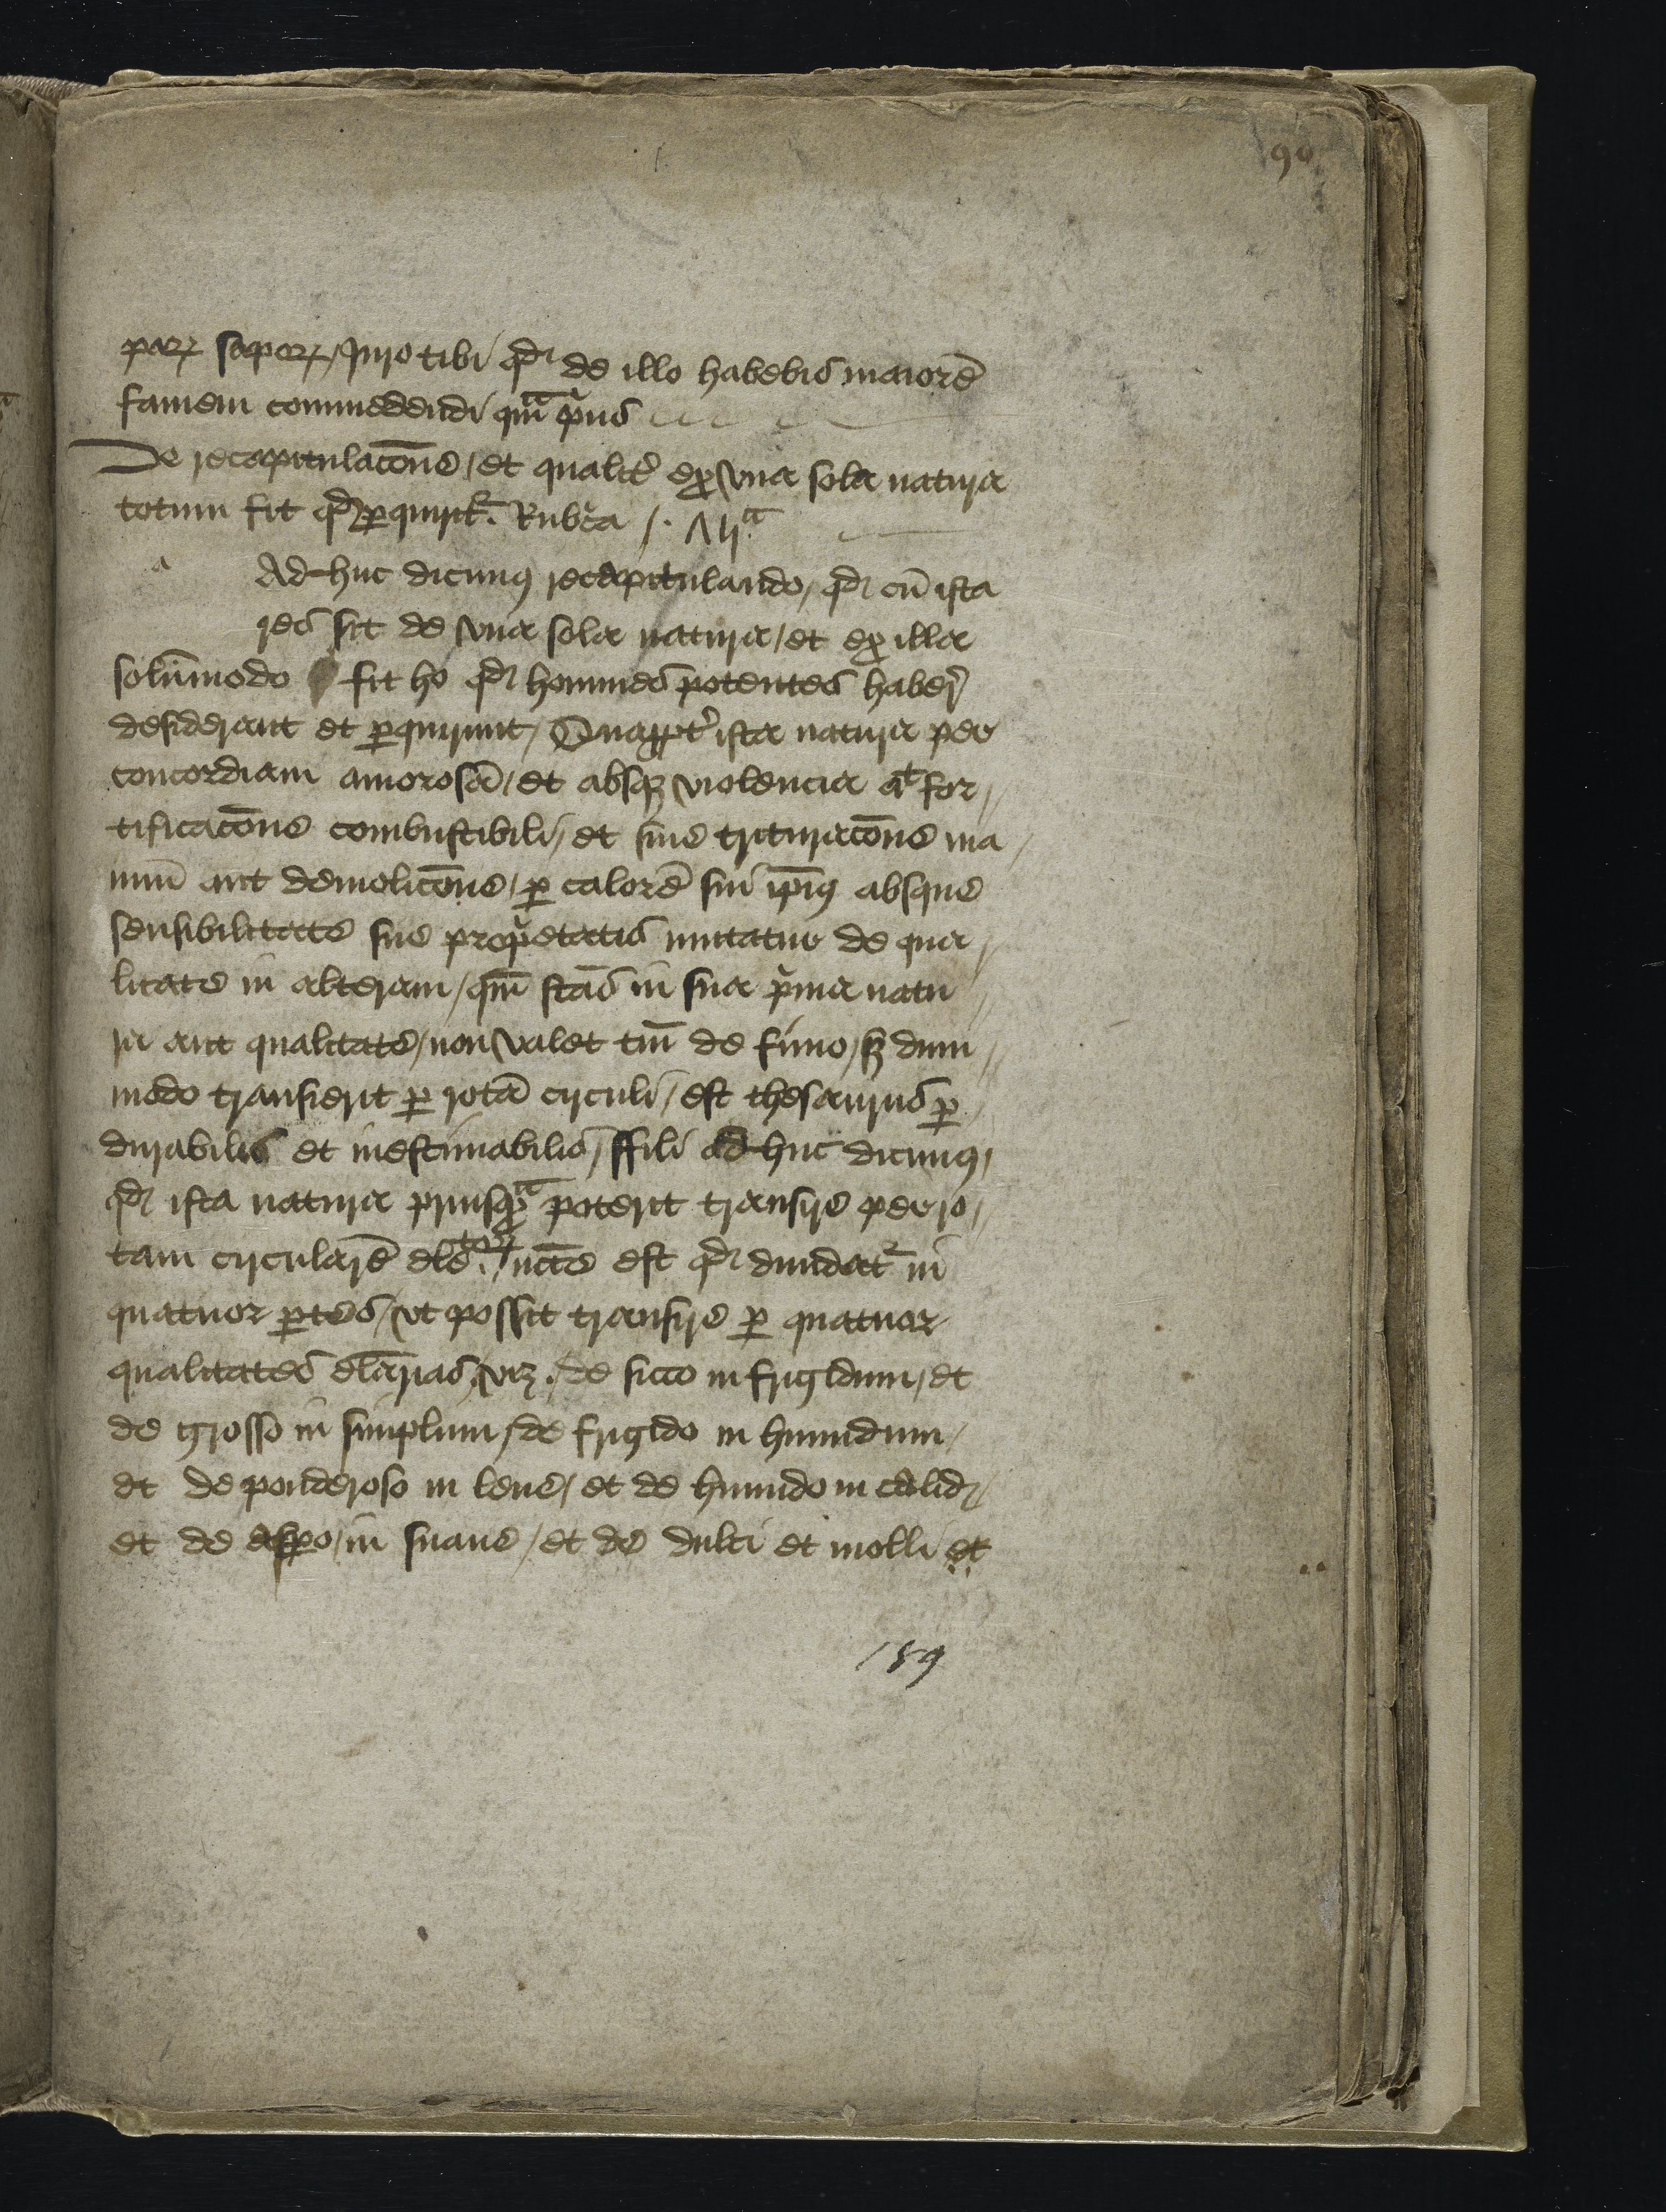 90
parꝝ saporꝝ / Juro tibi qđ de illo habebis maiorē
famem commedendi qm̄ᵃ pͥus
De recapitulacōne / et qualit̉ ex vna sola natura
totum fit qđ ꝑquirit᷑. Rubͥca /. vijᵃ
a Ad huc dicimꝰ recapitulando / qđ cū ista
res sit de vna sola natura / et ex illa
solūmodo fit ho qđ homines potentes haber̄
desiderant et ꝑquirunt / Quaꝓpt̉ ista natura per
concordiam amorosā / et absqꝫ violencia aᵗ for /
tificacōne combustibili / et sine trituracōne ma /
nuū aut demolicōne / ꝑ calorē sui ip̄iꝰ absque
sensibilitate sue propͥetatis mutatur de qua /
litate in alteram / qm̄ stās in sua pͥma natu /
ra aut qualitate / non valet tm̄ de fimo / sꝫ dum /
modo transierit ꝑ rotā circuli / est thesaurus ꝑ /
durabilis et inestimabilis / ffili ad huc dicimꝰ /
qđ ista natura priusqᵃꝫ poterit transire per ro /
tam circularē ele.toꝝ / ncc̄e est qđ diuidat᷑ in
quatuor ꝑtes / vt possit transire ꝑ quatuor
qualitates elārias / vꝫ. / de sicco in frigidum / et
de grosso in simplum / de frigido in humidum /
et de ponderoso in leue / et de humido in calidꝫ /
et de aspo / in suaue / et de dulci et molli et
189